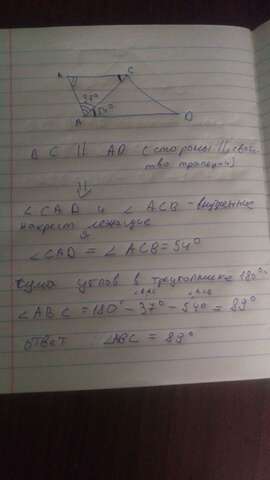 A C
37°
54°
A D
BC || AD (стороны ||, свой
ство трапеции)
⇓
∠CAD и ∠ACB - внутренние
накрест лежащие
∠CAD = ∠ACB = 54°
сума углов в треугольнике 180°
∠ABC = 180° - 37° - 54° = 89°
ответ ∠ABC = 89°